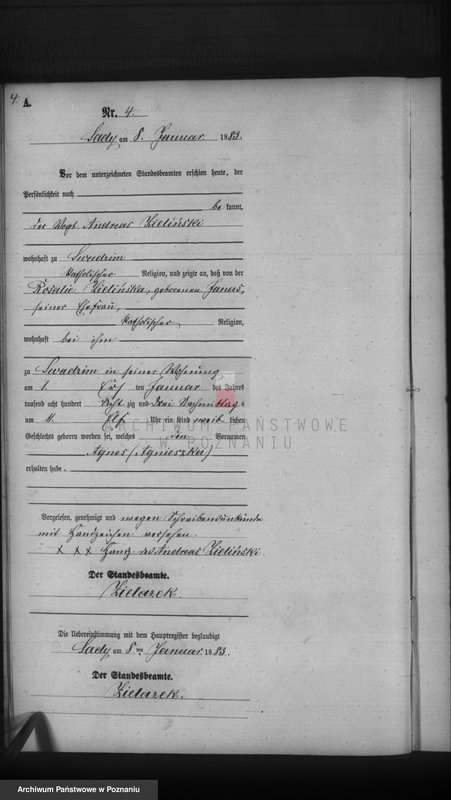 4.
A.
Nr. 4.
Sady, am 8. Januar 1883.
Vor dem unterzeichneten Standesbeamten erschien heute, der
Persönlichkeit nach
be kannt,
der Vogt Andreas Zieliński
wohnhaft zu Swadzim
katholischer Religion, und zeigte an, daß von der
Rosalie Zielińska, geborenen Janas,
seiner Ehefrau,
katholischer Religion,
wohnhaft bei ihm
zu Swadzim in seiner Wohnung
am 1. ten Januar des Jahres
tausend acht hundert Acht zig und drei Nachmittags
um 11. Elf Uhr ein Kind weib lichen
Geschlechts geboren worden sei, welches den Vornamen
Agnes (Agnieszka)
erhalten habe.
Vorgelesen, genehmigt und wegen Schreibensunkunde
mit Handzeichen versehen.
x x x Hand des Andreas Zieliński.
Der Standesbeamte.
Die Uebereinstimmung mit dem Hauptregister beglaubigt
Sady, am 8ten Januar 1883.
Der Standesbeamte.
ARCHIWUM PAŃSTWOWE
W POZNANIU
Archiwum Państwowe w Poznaniu